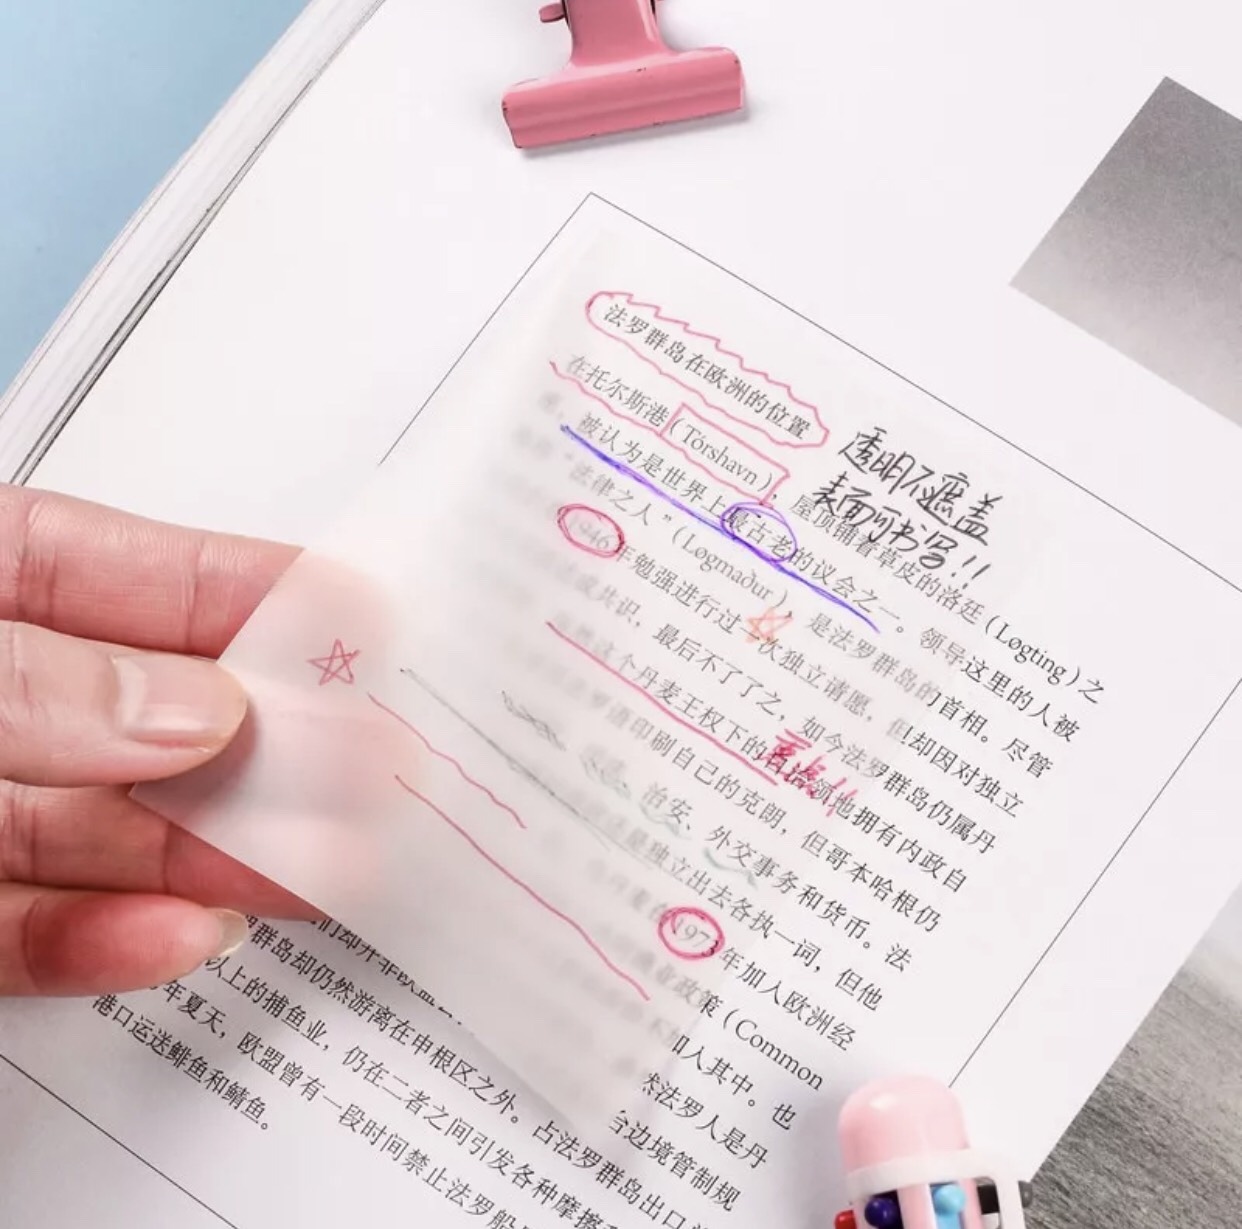 法罗群岛在欧洲的位置
在托尔斯港（Tórshavn），屋顶铺着草皮的洛廷（Løgting）之
被认为是世界上最古老的议会之一。领导这里的人被
“法律之人”（Løgmaður），是法罗群岛的首相。尽管
1946年勉强进行过一次独立请愿，但却因对独立
成共识，最后不了了之，如今法罗群岛仍属丹
这个丹麦王权下的自治领地拥有内政自
罗语印刷自己的克朗，但哥本哈根仍
治安、外交事务和货币。法
是独立出去各执一词，但他
1973年加入欧洲经
业政策（Common
加入其中。也
然法罗人是丹
合边境管制规
群岛却仍然游离在申根区之外。占法罗群岛出口
以上的捕鱼业，仍在二者之间引发各种摩擦
年夏天，欧盟曾有一段时间禁止法罗船
港口运送鲱鱼和鲭鱼。
透明不遮盖
表面可书写!!